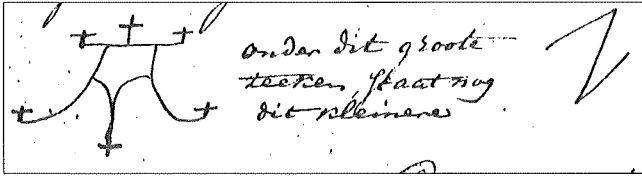 onder dit groote
teeken, staat nog
dit kleinere